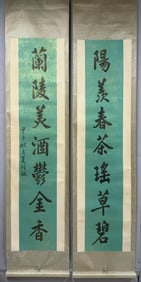 陽羨春茶瑤草碧
蘭陵美酒鬱金香